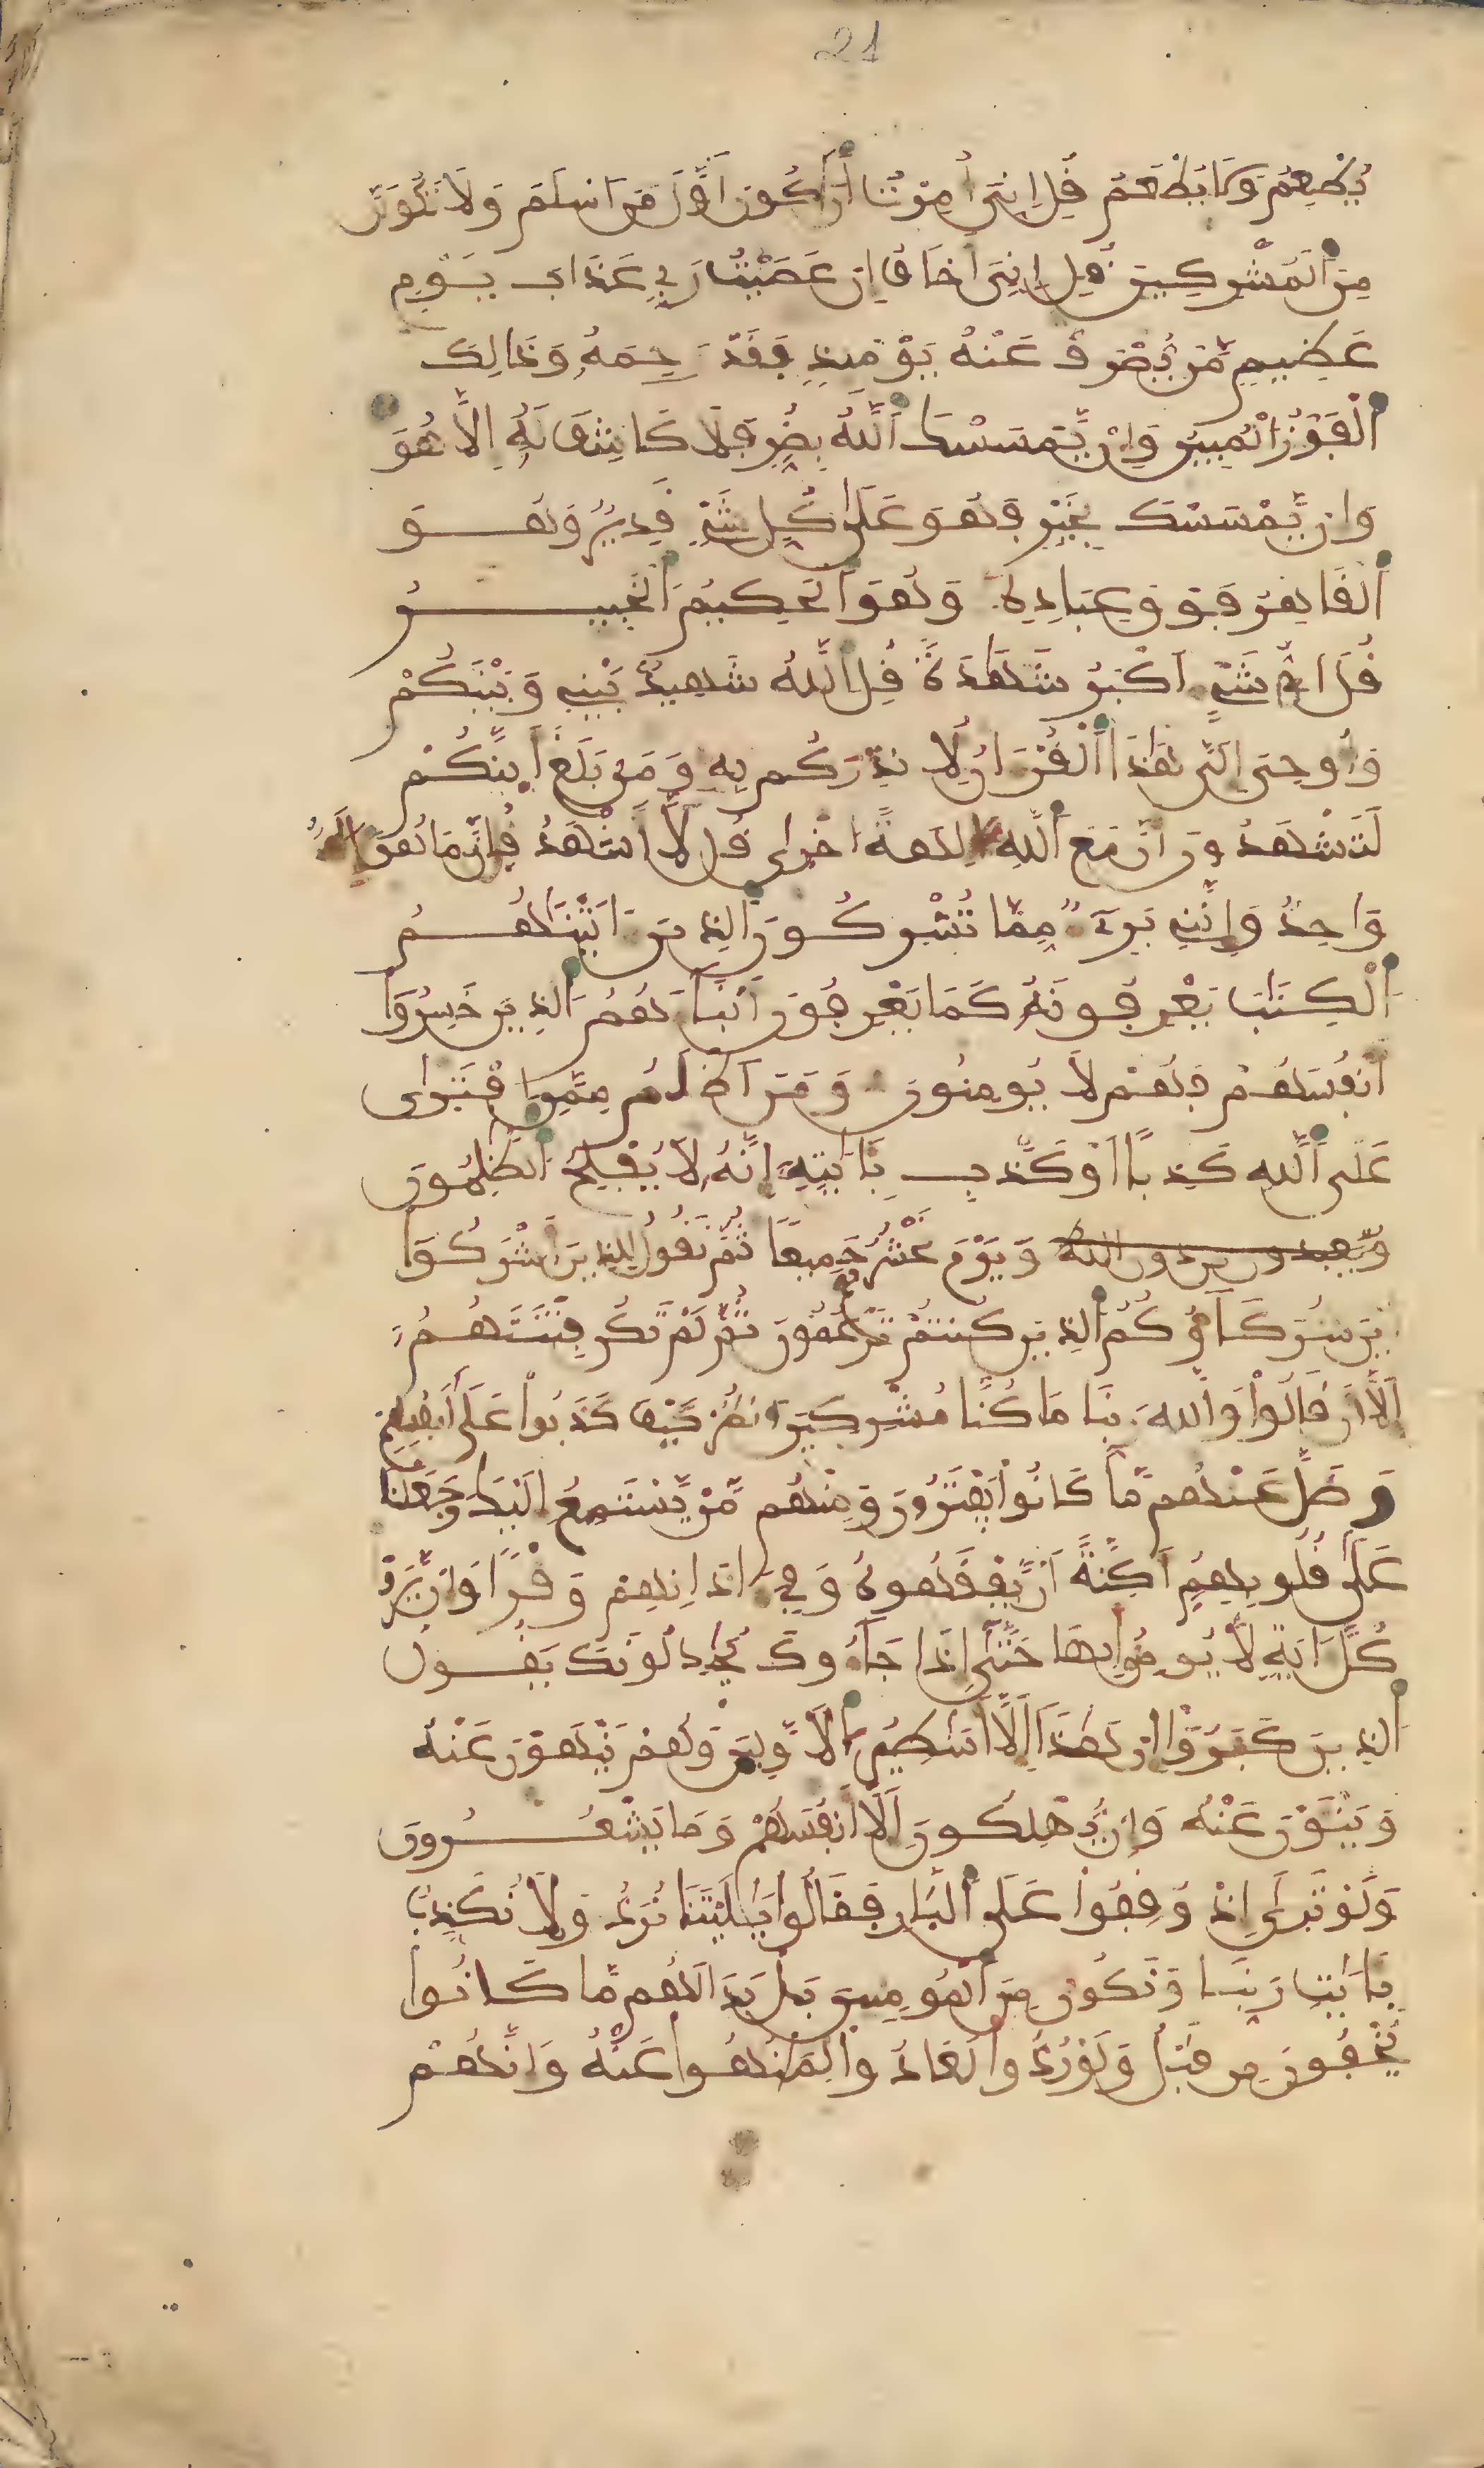 21
يُطْعِمُ وَلَا يُطْعَمُ قُلِ انِّيَ أُمِرْتُ أَنَ اَكُونَ أَوَّلَ مَنَ اَسْلَمَ وَلَا تَكُونَنَّ
مِنَ اَلْمُشْرِكِينَ قُلِ اِنِّيَ أَخَافُ إِنْ عَصَيْتُ رَبِّي عَذَابَ يَوْمٍ
عَظِيمٍ مَّنْ يُّصْرَفْ عَنْهُ يَوْمَئِذٍ فَقَدْ رَحِمَهُ وَذَالِكَ
اَلْفَوْزُ اُلْمُبِينُ وَإِنْ يَّمْسَسْكَ اَللَّهُ بِضُرٍّ فَلَا كَاشِفَ لَهُ إِلَّا هُوَ
وَإِنْ يَّمْسَسْكَ بِخَيْرٍ فَهُوَ عَلَىٰ كُلِّ شَيْءٍ قَدِيرٌ وَهُوَ
اَلْقَاهِرُ فَوْقَ عِبَادِهِ وَهُوَ اَلْحَكِيمُ اُلْخَبِيرُ
قُلَ اَيُّ شَيْءٍ اَكْبَرُ شَهَٰدَةً قُلِ اِللَّهُ شَهِيدٌ بَيْنِي وَبَيْنَكُمْ
وَأُوحِيَ إِلَيَّ هَٰذَا اَلْقُرْءَانُ لِأُنذِرَكُم بِهِ وَمَنۢ بَلَغَ أَئِنَّكُمْ
لَتَشْهَدُونَ أَنَّ مَعَ اَللَّهِ ءَالِهَةً اُخْرَىٰ قُل لَّا أَشْهَدُ قُلِ اِنَّمَا هُوَ إِلَٰهٌ
وَاحِدٌ وَإِنَّنِي بَرِيٓءٌ مِّمَّا تُشْرِكُونَ اَلذِينَ ءَاتَيْنَٰهُمُ
اُلْكِتَٰبَ يَعْرِفُونَهُ كَمَا يَعْرِفُونَ أَبْنَاءَهُمُ اُلذِينَ خَسِرُوا
أَنفُسَهُمْ فَهُمْ لَا يُومِنُونَ وَمَنَ اَظْلَمُ مِمَّنِ اِفْتَرَىٰ
عَلَى اَللَّهِ كَذِبًا اَوْ كَذَّبَ بِـَٔايَٰتِهِ إِنَّهُ لَا يُفْلِحُ اُلظَّٰلِمُونَ
وَيعبدون من دون الله وَيَوْمَ نَحْشُرُهُمْ جَمِيعًا ثُمَّ نَقُولُ لِلذِينَ أَشْرَكُوا
أَيْنَ شُرَكَاؤُكُمُ اُلذِينَ كُنتُمْ تَزْعُمُونَ ثُمَّ لَمْ تَكُن فِتْنَتَهُمُ
إِلَّا أَن قَالُوا وَاللَّهِ رَبِّنَا مَا كُنَّا مُشْرِكِينَ اَنظُرْ كَيْفَ كَذَبُوا عَلَىٰ أَنفُسِهِمْ
وَضَلَّ عَنْهُم مَّا كَانُوا يَفْتَرُونَ وَمِنْهُم مَّنْ يَّسْتَمِعُ إِلَيْكَ وَجَعَلْنَا
عَلَىٰ قُلُوبِهِمُ أَكِنَّةً أَنْ يَّفْقَهُوهُ وَفِي ءَاذَانِهِمْ وَقْرًا وَإِنْ يَّرَوْا
كُلَّ ءَايَةٍ لَّا يُومِنُوا بِهَا حَتَّىٰ إِذَا جَاءُوكَ يُجَٰدِلُونَكَ يَقُولُ
اُلذِينَ كَفَرُوا إِنْ هَٰذَا إِلَّا أَسَٰطِيرُ اُلَاوَّلِينَ وَهُمْ يَنْهَوْنَ عَنْهُ
وَيَنْـَٔوْنَ عَنْهُ وَإِنْ يُّهْلِكُونَ إِلَّا أَنفُسَهُمْ وَمَا يَشْعُرُونَ
وَلَوْ تَرَىٰ إِذْ وُقِفُوا عَلَى اَلنَّارِ فَقَالُوا يَٰلَيْتَنَا نُرَدُّ وَلَا نُكَذِّبُ
بِـَٔايَٰتِ رَبِّنَا وَنَكُونُ مِنَ اَلْمُومِنِينَ بَلْ بَدَا لَهُم مَّا كَانُوا
يُخْفُونَ مِن قَبْلُ وَلَوْ رُدُّوا لَعَادُوا لِمَا نُهُوا عَنْهُ وَإِنَّهُمْ